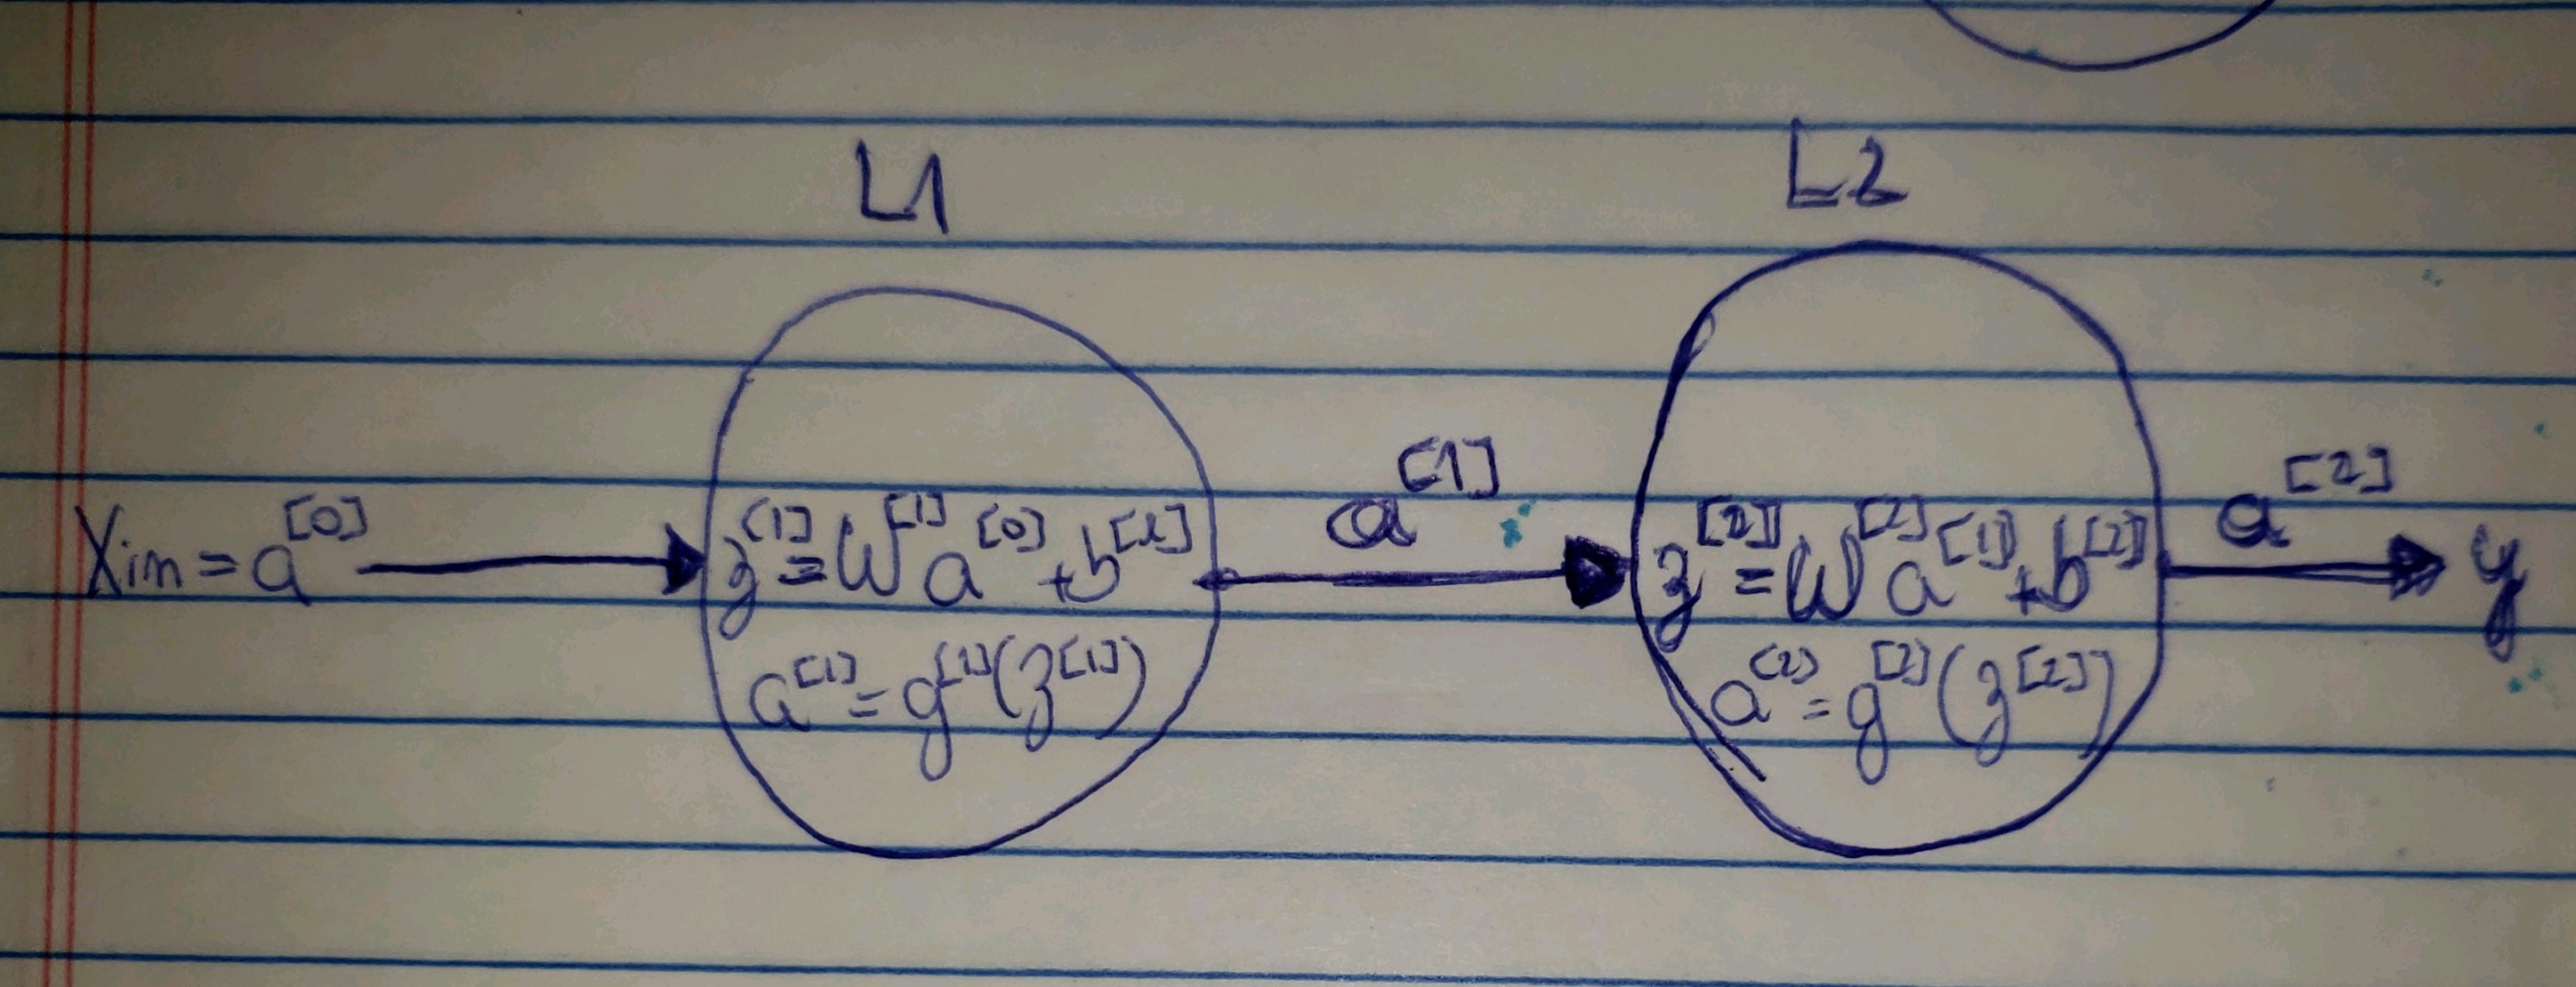 L1
L2
Xin = a^[0]
z^[1] = W^[1] a^[0] + b^[1]
a^[1] = g^[1](z^[1])
a^[1]
z^[2] = W^[2] a^[1] + b^[2]
a^(2) = g^[2](z^[2])
a^[2]
y